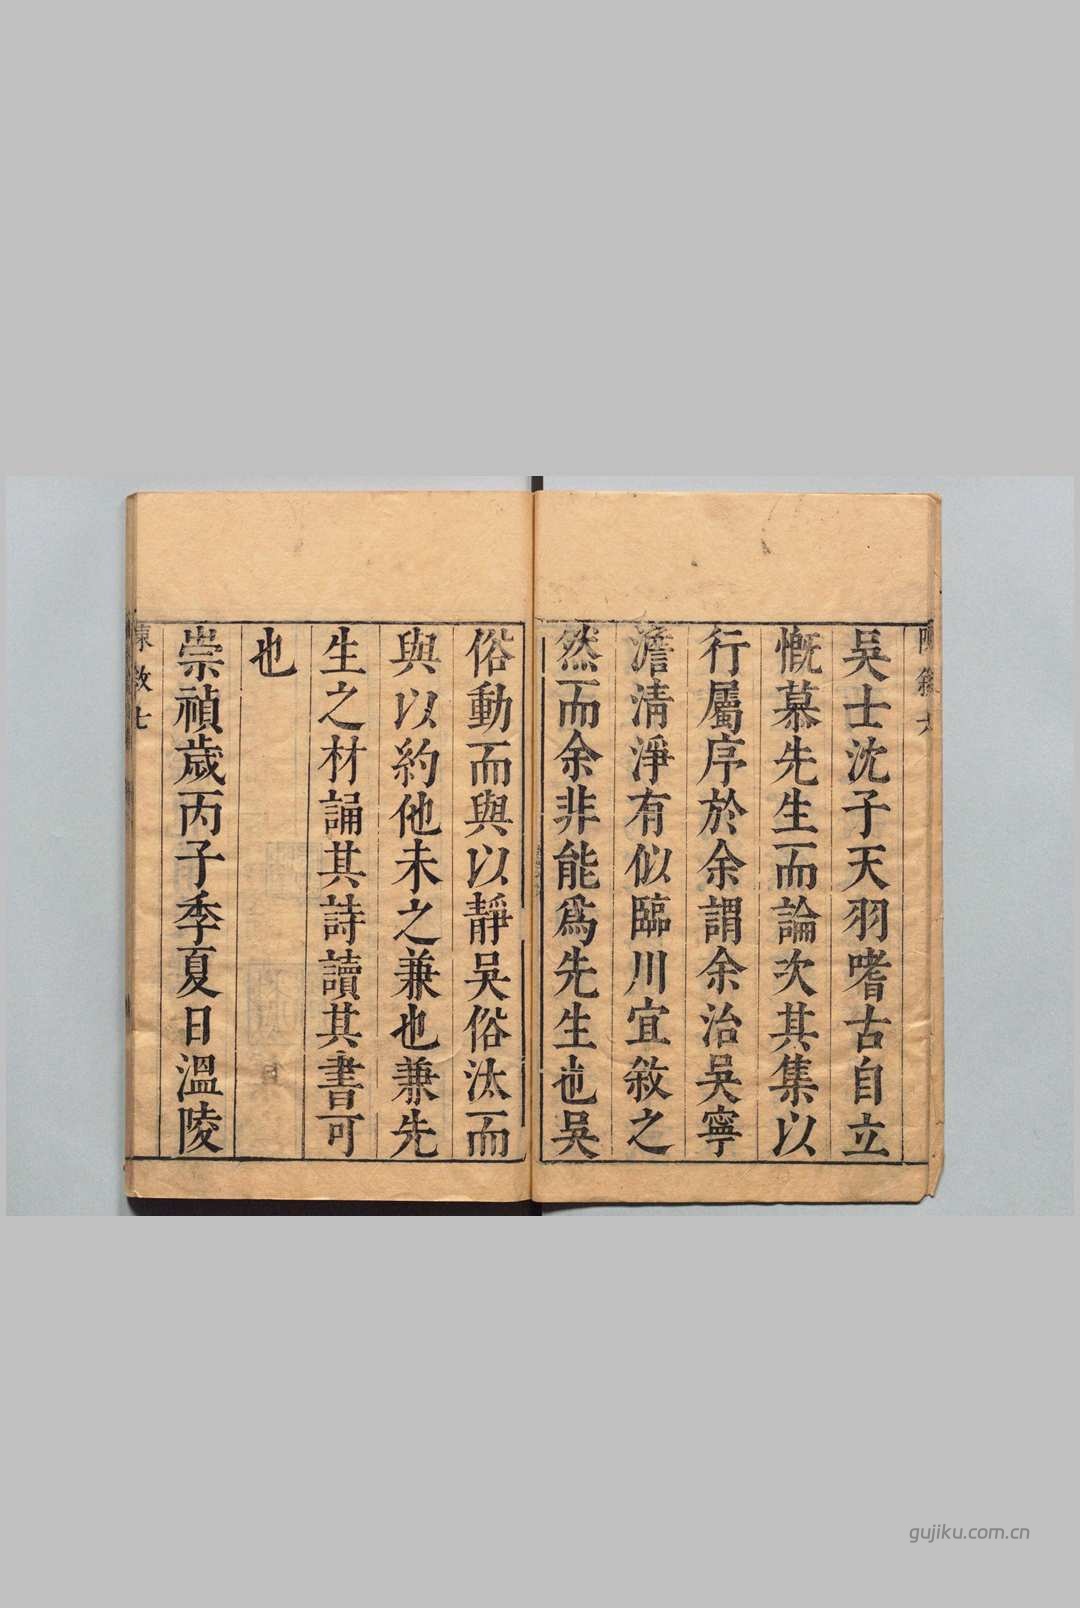 吳士沈子天羽嗜古自立
慨慕先生而論次其集以
行屬序於余謂余治吳寧
澹清淨有似臨川宜敘之
然而余非能爲先生也吳
俗動而與以靜吳俗汰而
與以約他未之兼也兼先
生之材誦其詩讀其書可
也
崇禎歲丙子季夏日溫陵
敘七
gujiku.com.cn